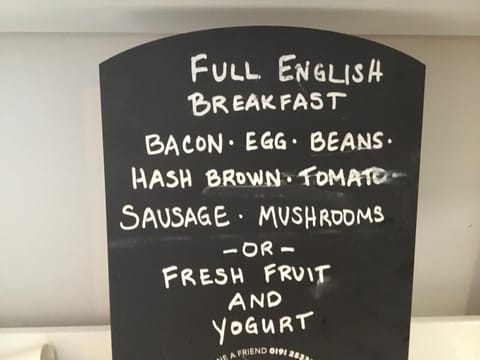 FULL ENGLISH
BREAKFAST
BACON · EGG · BEANS ·
HASH BROWN · TOMATO
SAUSAGE · MUSHROOMS
- OR -
FRESH FRUIT
AND
YOGURT
A FRIEND 0191